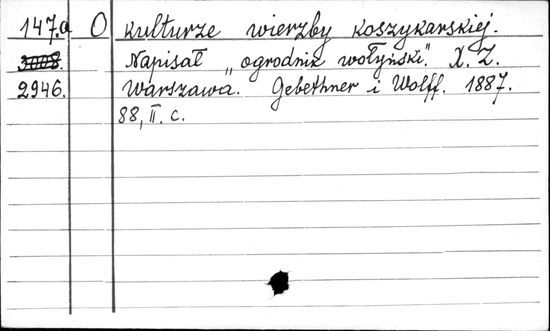 147.a O kulturze wierzby koszykarskiej.
3008. Napisał „ogrodnik wołyński". X. Z.
2946. Warszawa. Gebethner i Wolff. 1887.
88, II. c.